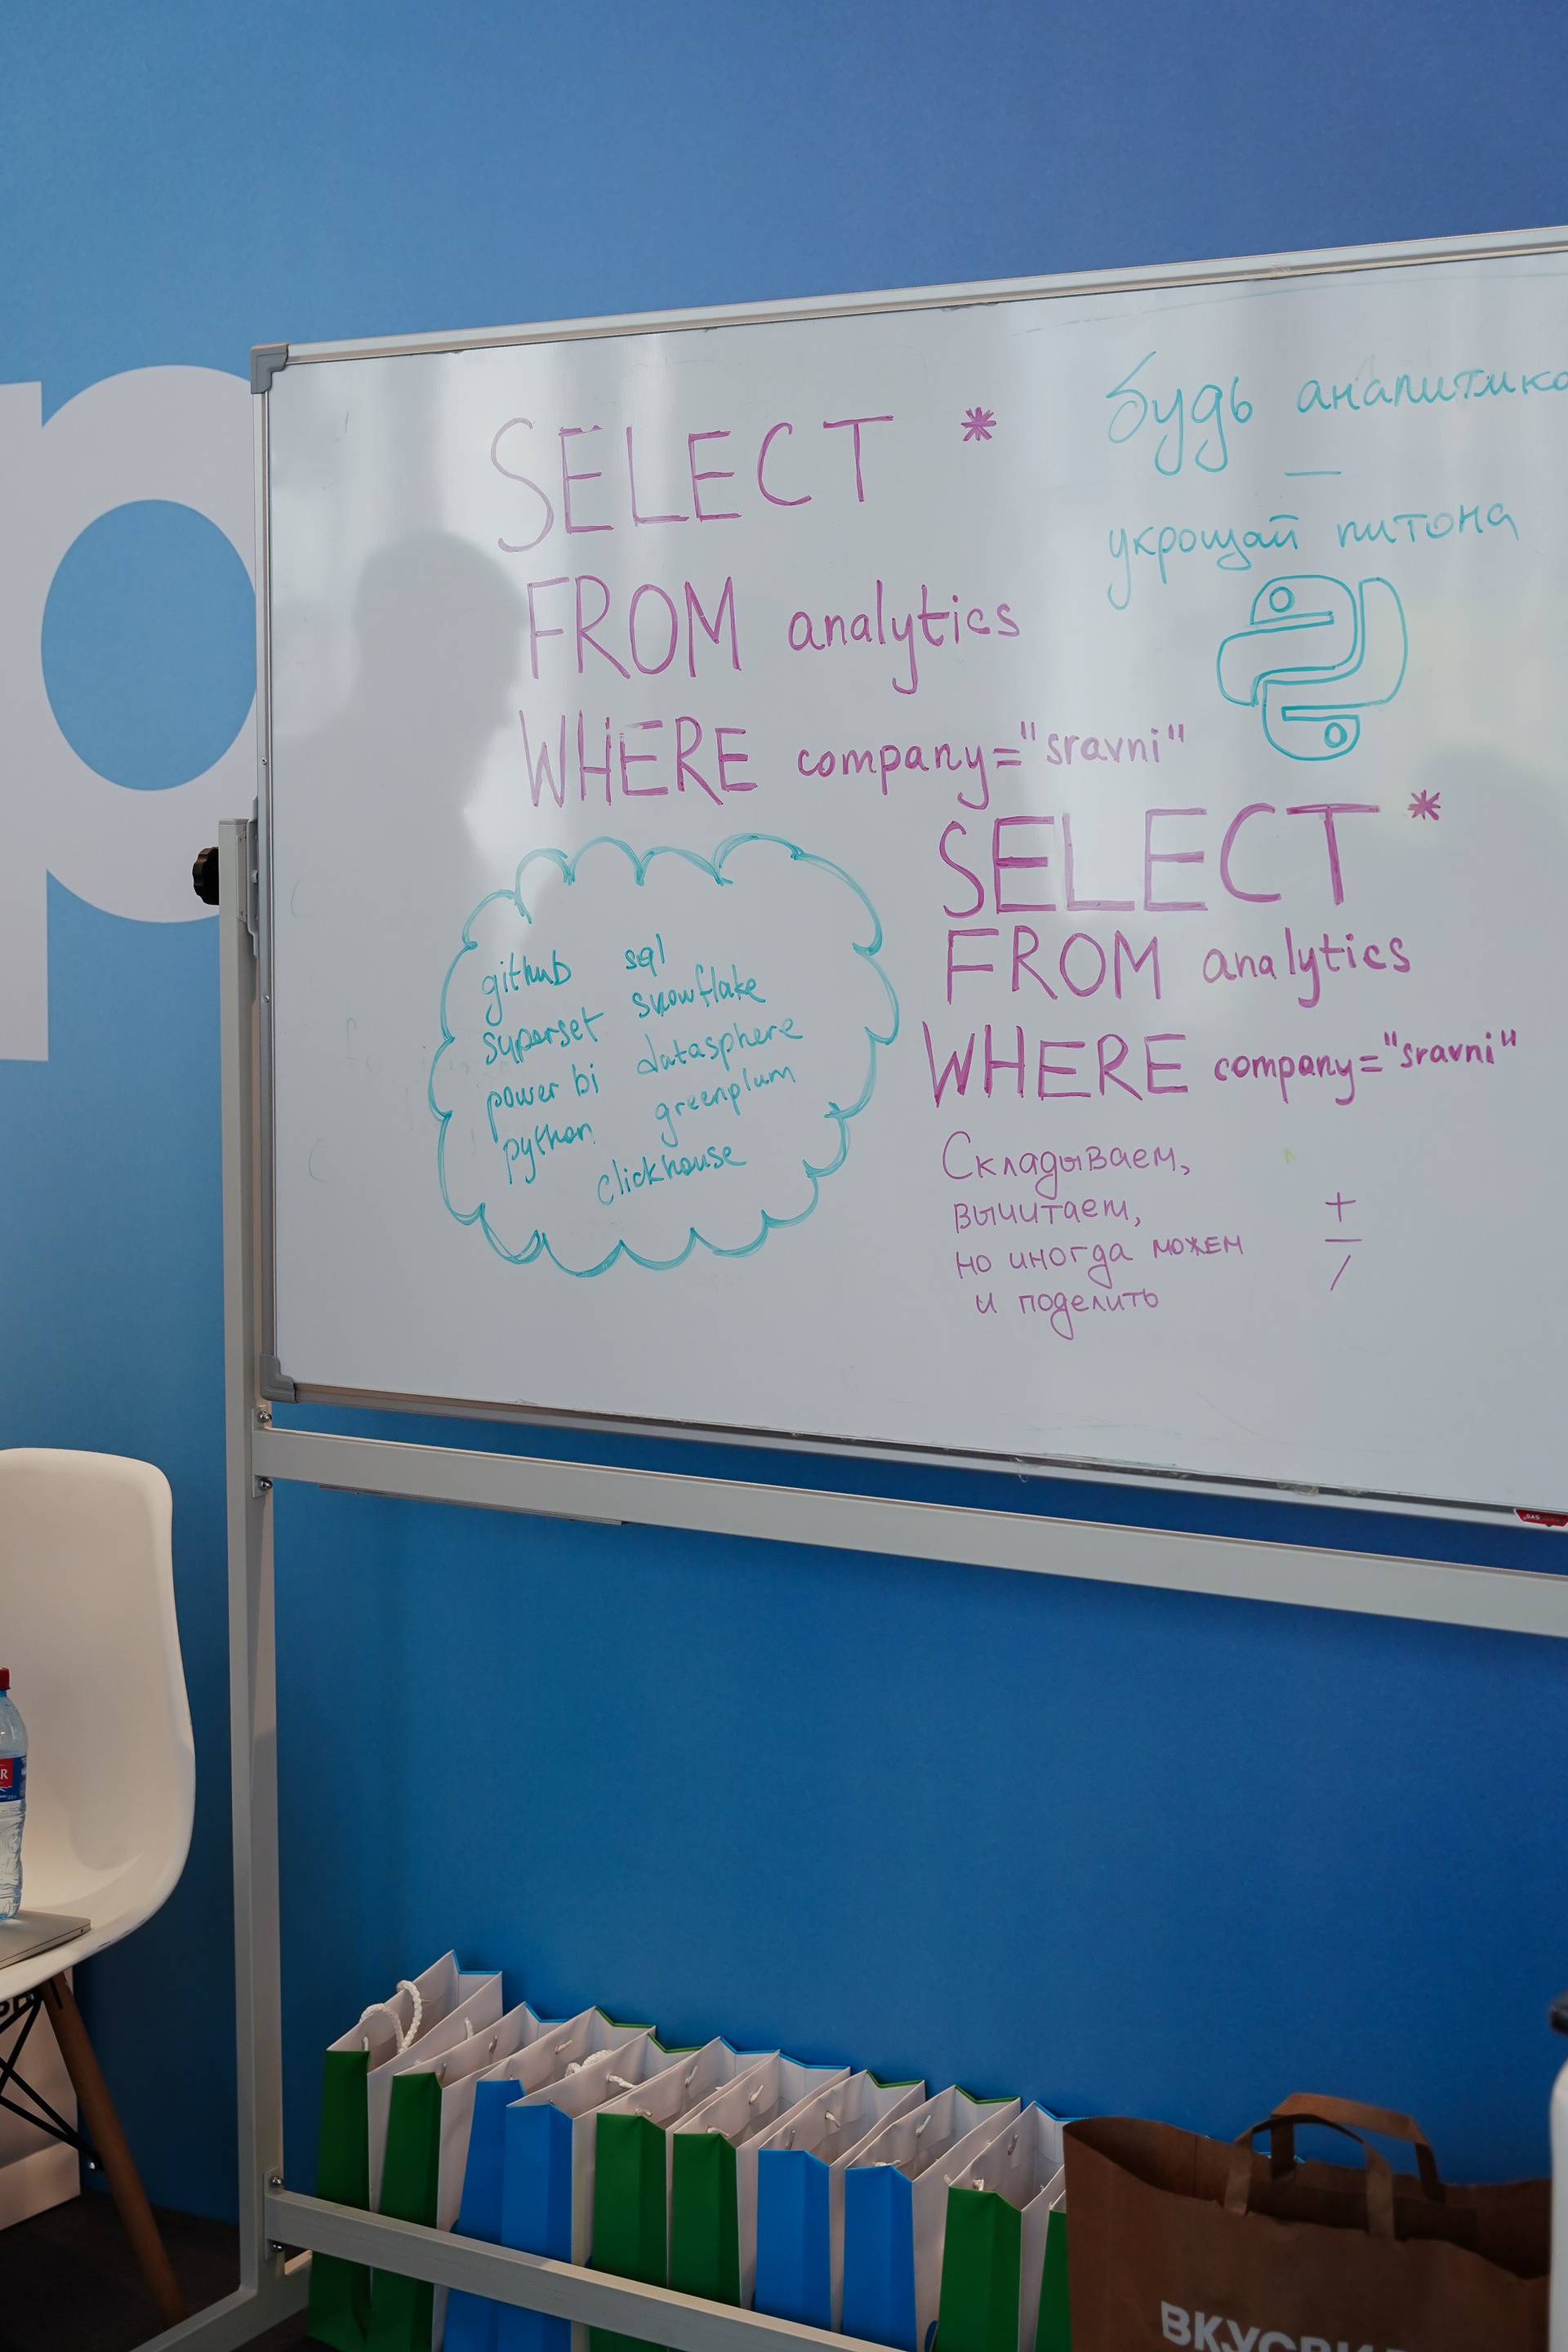 р
SELECT *
FROM analytics
WHERE company="sravni"
будь аналитико
—
укрощай питона
github sql
superset snowflake
power bi datasphere
python greenplum
clickhouse
SELECT *
FROM analytics
WHERE company="sravni"
Складываем,
вычитаем,
но иногда можем
и поделить
+
—
/
ВКУСВИ